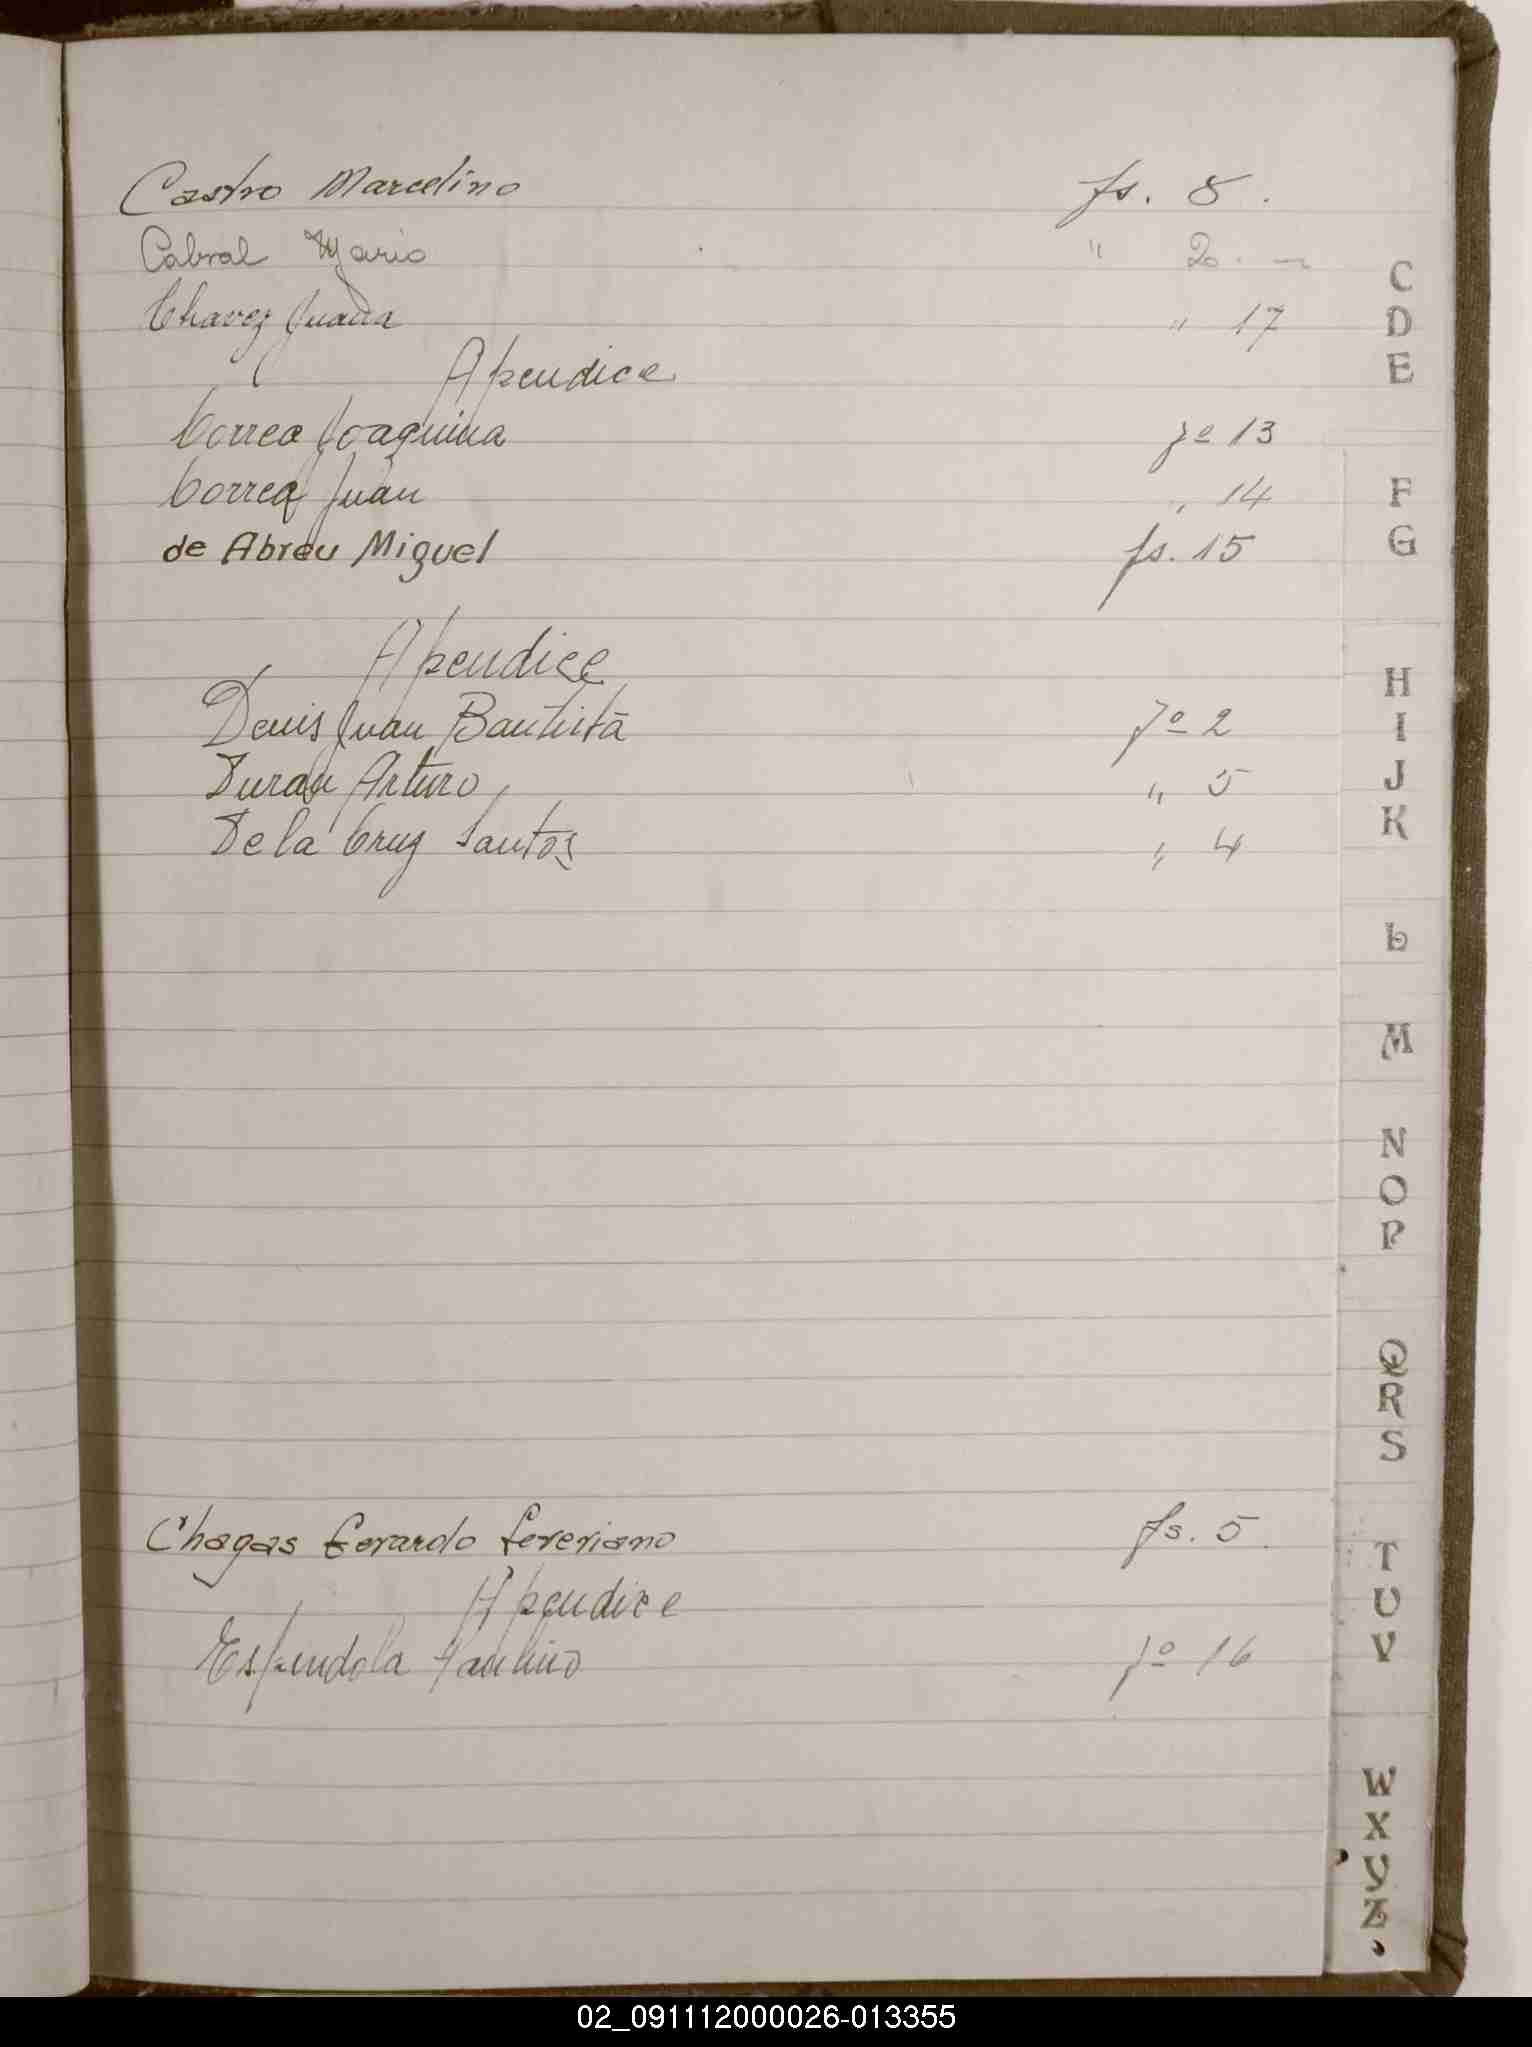 Castro Marcelino fs. 8.
Cabral Mario " 20. —
Chavez Juana " 17
Apendice
Correa Joaquina fº 13
Correa Juan " 14
de Abreu Miguel fs. 15
Apendice
Denis Juan Bautista fº 2
Duran Arturo " 5
De la Cruz Santos " 4
Chagas Gerardo Severiano fs. 5.
Apendice
Espindola Paulino fº 16
C
D
E
F
G
H
I
J
K
L
M
N
O
P
Q
R
S
T
U
V
W
X
Y
Z
02_091112000026-013355